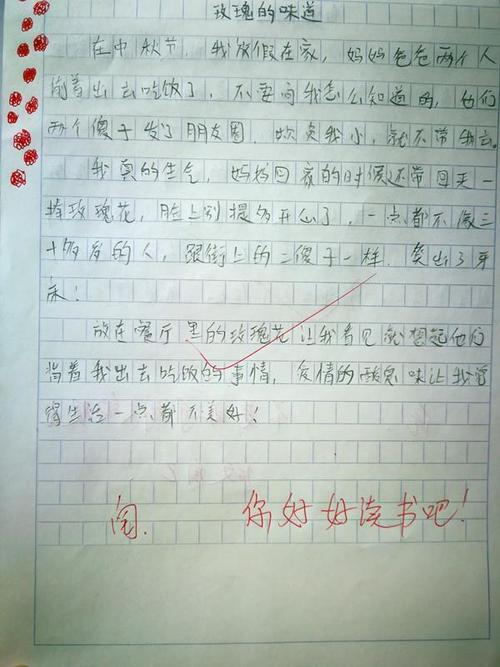 玫瑰的味道
在中秋节,我放假在家,妈妈爸爸两个人
背着出去吃饭了,不要问我怎么知道的,他们
两个傻子发了朋友圈,欺负我小,就不带我去。
我真的生气,妈妈回家的时候还带回来一
捧玫瑰花,脸上别提多开心了,一点都不像三
十多岁的人,跟街上的二傻子一样,笑出了牙
床!
放在餐厅里的玫瑰花让我看见就想起他们
背着我出去吃饭的事情,爱情的酸臭味让我觉
得生活一点都不美好!
阅.
你好好读书吧!